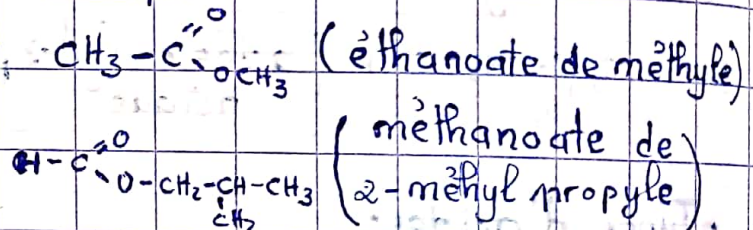 CH₃-C=O-OCH₃ (éthanoate de méthyle)
H-C=O-O-CH₂-CH-CH₃ (méthanoate de
CH₃ 2-méhyl propyle)